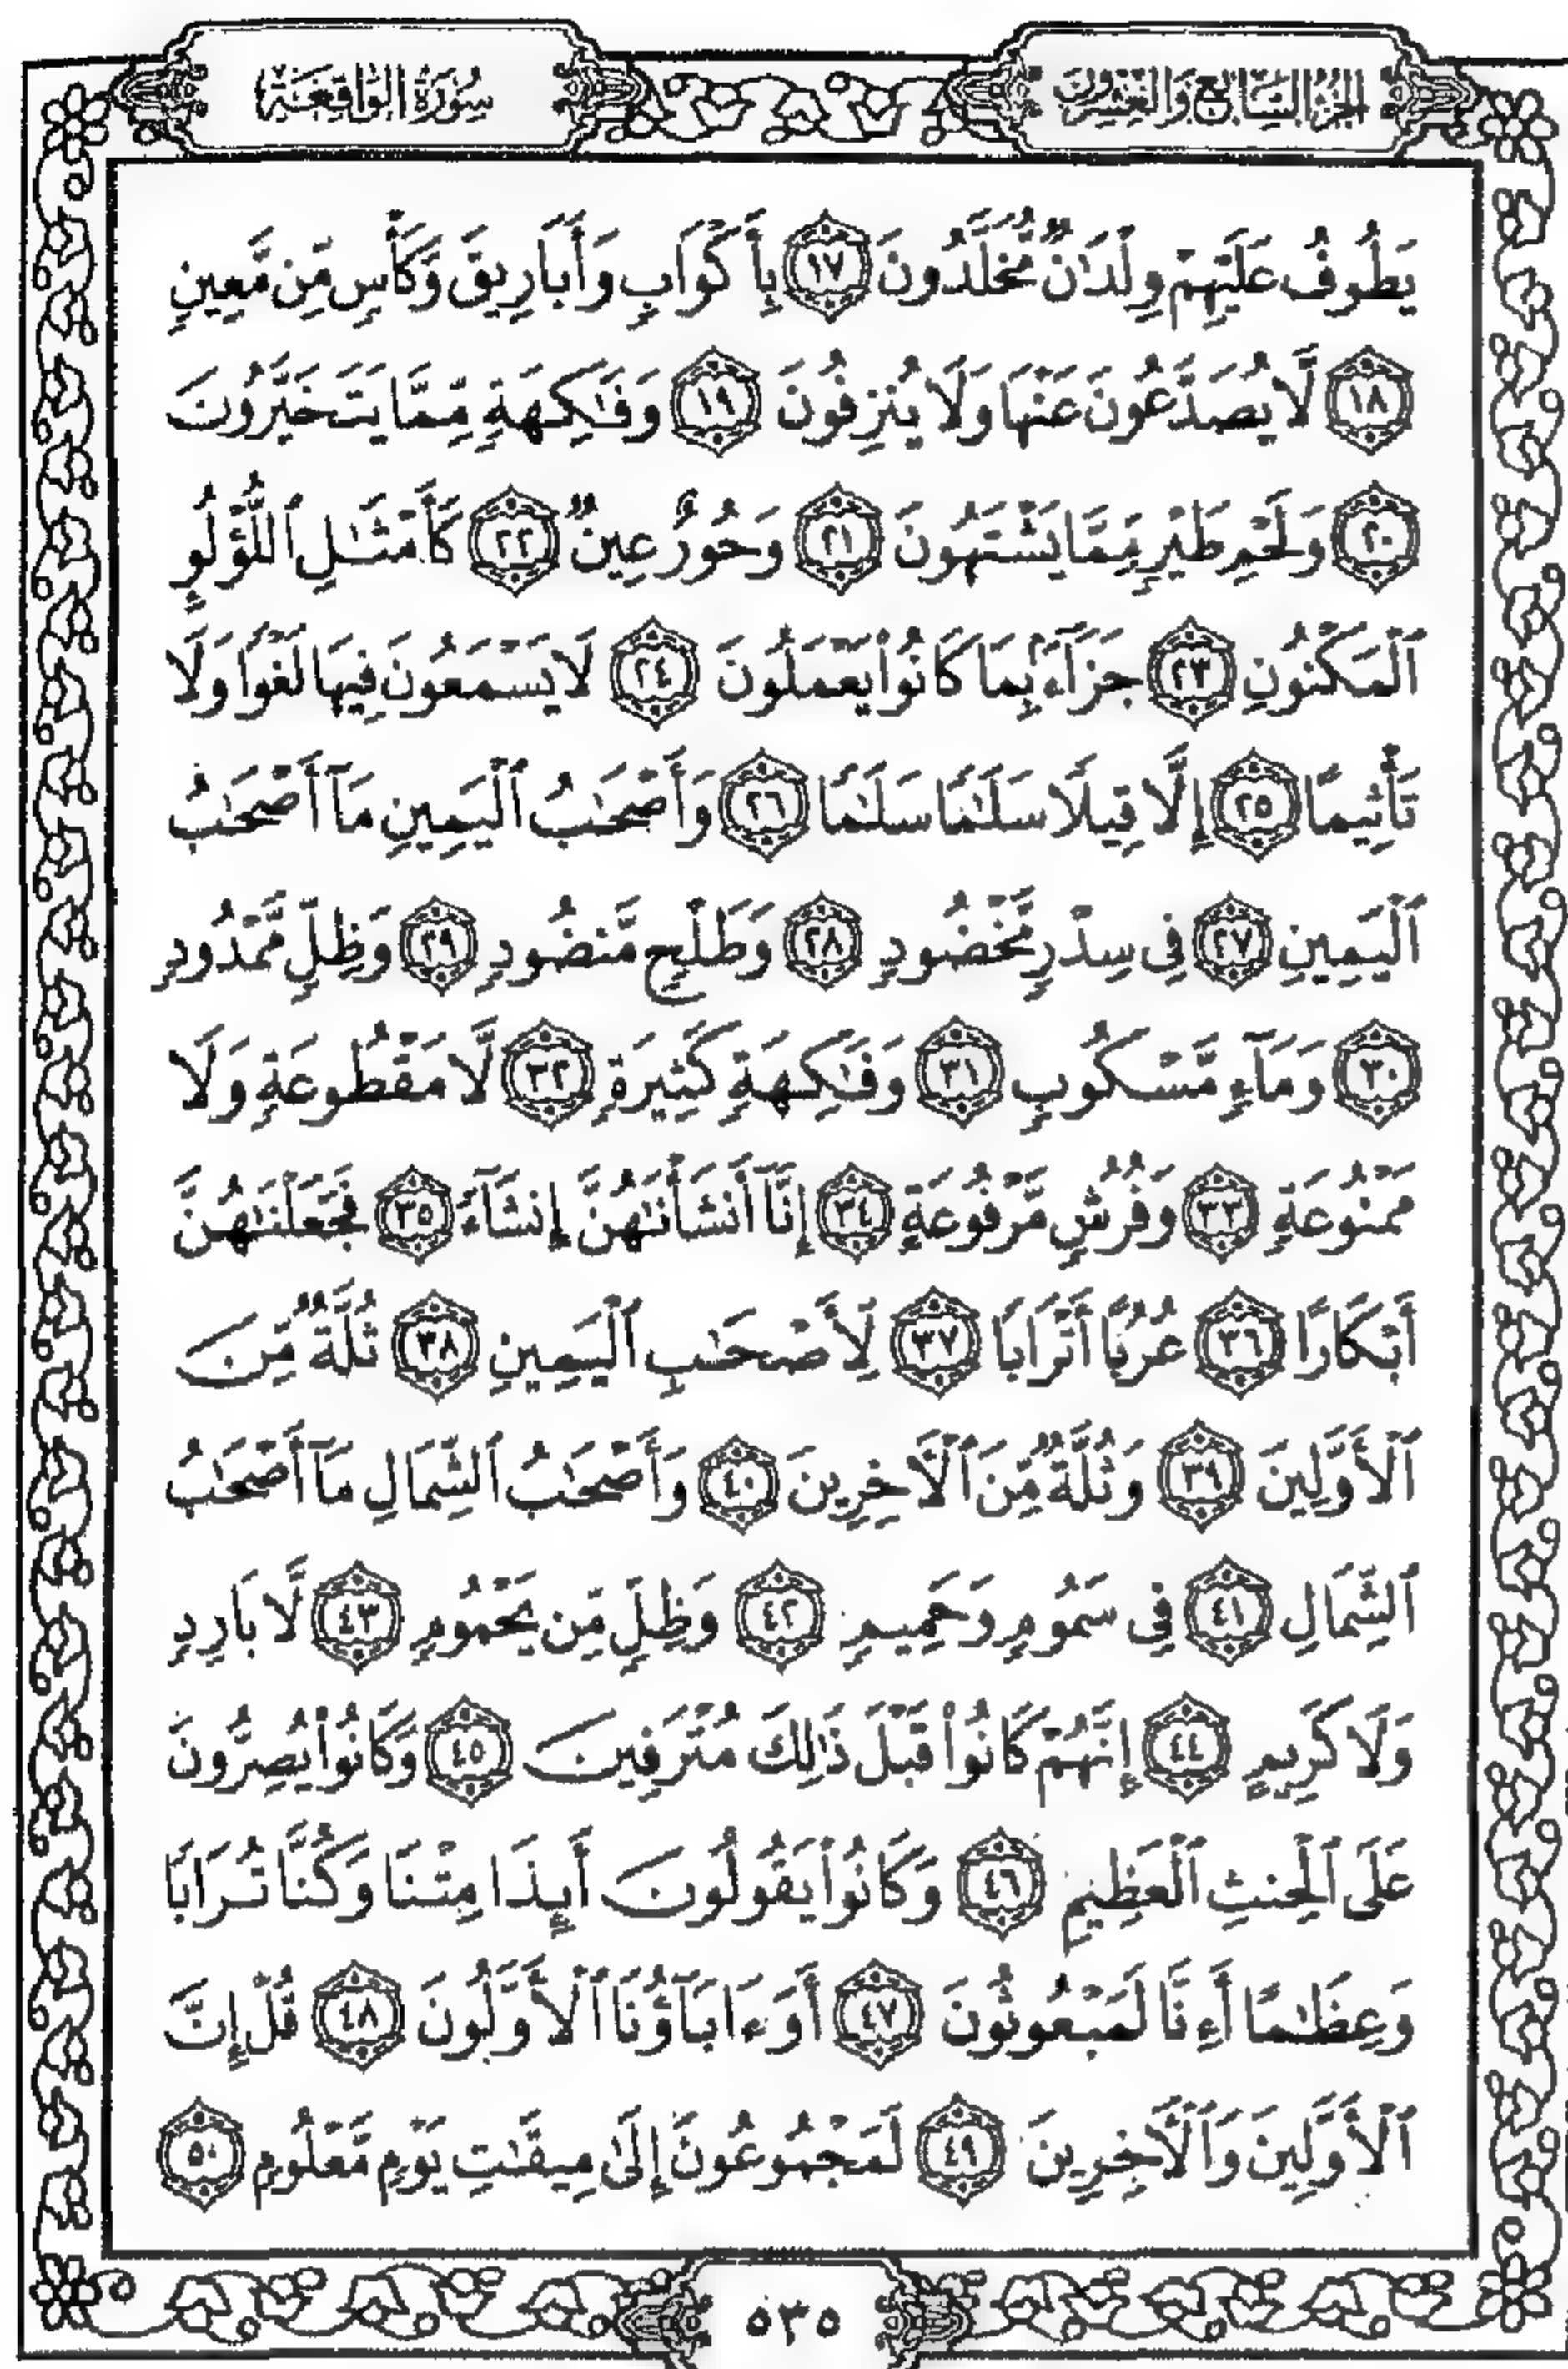 الجزء السابع والعشرون
سورة الواقعة
يَطُوفُ عَلَيْهِمْ وِلْدَٰنٌ مُّخَلَّدُونَ ١٧ بِأَكْوَابٍ وَأَبَارِيقَ وَكَأْسٍ مِّن مَّعِينٍ
١٨ لَّا يُصَدَّعُونَ عَنْهَا وَلَا يُنزِفُونَ ١٩ وَفَٰكِهَةٍ مِّمَّا يَتَخَيَّرُونَ
٢٠ وَلَحْمِ طَيْرٍ مِّمَّا يَشْتَهُونَ ٢١ وَحُورٌ عِينٌ ٢٢ كَأَمْثَٰلِ ٱللُّؤْلُوِٕ
ٱلْمَكْنُونِ ٢٣ جَزَآءًۢ بِمَا كَانُوا۟ يَعْمَلُونَ ٢٤ لَا يَسْمَعُونَ فِيهَا لَغْوًا وَلَا
تَأْثِيمًا ٢٥ إِلَّا قِيلًا سَلَٰمًا سَلَٰمًا ٢٦ وَأَصْحَٰبُ ٱلْيَمِينِ مَآ أَصْحَٰبُ
ٱلْيَمِينِ ٢٧ فِى سِدْرٍ مَّخْضُودٍ ٢٨ وَطَلْحٍ مَّنضُودٍ ٢٩ وَظِلٍّ مَّمْدُودٍ
٣٠ وَمَآءٍ مَّسْكُوبٍ ٣١ وَفَٰكِهَةٍ كَثِيرَةٍ ٣٢ لَّا مَقْطُوعَةٍ وَلَا
مَمْنُوعَةٍ ٣٣ وَفُرُشٍ مَّرْفُوعَةٍ ٣٤ إِنَّآ أَنشَأْنَٰهُنَّ إِنشَآءً ٣٥ فَجَعَلْنَٰهُنَّ
أَبْكَارًا ٣٦ عُرُبًا أَتْرَابًا ٣٧ لِّأَصْحَٰبِ ٱلْيَمِينِ ٣٨ ثُلَّةٌ مِّنَ
ٱلْأَوَّلِينَ ٣٩ وَثُلَّةٌ مِّنَ ٱلْءَاخِرِينَ ٤٠ وَأَصْحَٰبُ ٱلشِّمَالِ مَآ أَصْحَٰبُ
ٱلشِّمَالِ ٤١ فِى سَمُومٍ وَحَمِيمٍ ٤٢ وَظِلٍّ مِّن يَحْمُومٍ ٤٣ لَّا بَارِدٍ
وَلَا كَرِيمٍ ٤٤ إِنَّهُمْ كَانُوا۟ قَبْلَ ذَٰلِكَ مُتْرَفِينَ ٤٥ وَكَانُوا۟ يُصِرُّونَ
عَلَى ٱلْحِنثِ ٱلْعَظِيمِ ٤٦ وَكَانُوا۟ يَقُولُونَ أَئِذَا مِتْنَا وَكُنَّا تُرَابًا
وَعِظَٰمًا أَءِنَّا لَمَبْعُوثُونَ ٤٧ أَوَءَابَآؤُنَا ٱلْأَوَّلُونَ ٤٨ قُلْ إِنَّ
ٱلْأَوَّلِينَ وَٱلْءَاخِرِينَ ٤٩ لَمَجْمُوعُونَ إِلَىٰ مِيقَٰتِ يَوْمٍ مَّعْلُومٍ ٥٠
٥٣٥